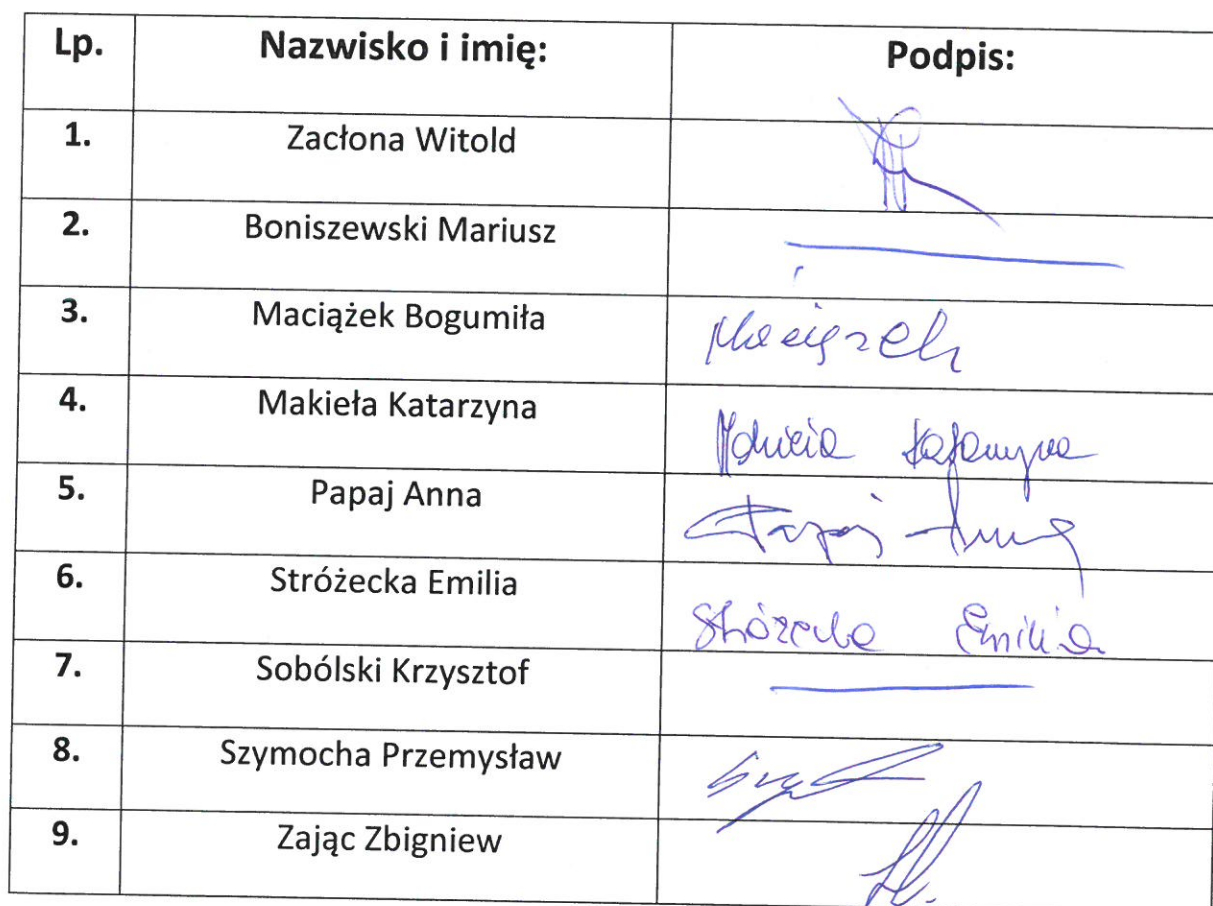 Lp. Nazwisko i imię: Podpis:
1. Zacłona Witold
2. Boniszewski Mariusz
3. Maciążek Bogumiła Maciążek
4. Makieła Katarzyna Makieła Katarzyna
5. Papaj Anna Papaj Anna
6. Stróżecka Emilia Stróżecka Emilia
7. Sobólski Krzysztof
8. Szymocha Przemysław
9. Zając Zbigniew